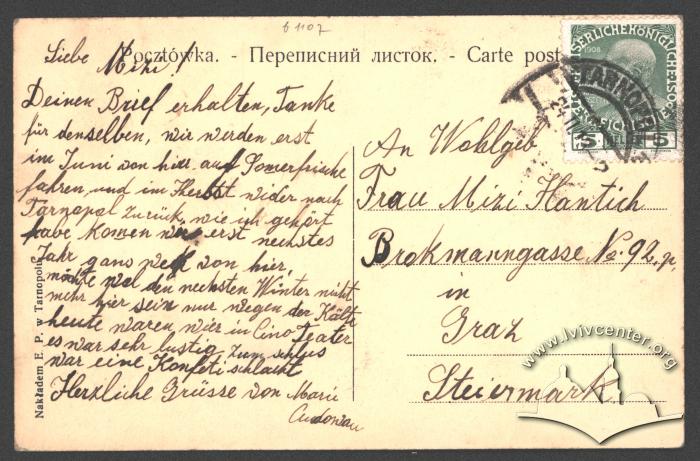 b 1107
Pocztówka. - Переписний листок. - Carte post
Liebe Mizi!
Deinen Brief erhalten, Tanke
für denselben, wir werden erst
im Juni von hir auf Somerfrische
fahren und im Herbst wider nach
Tarnopal zurück, wie ich gehört
habe komen wir erst nechstes
Jahr ganz weg von hier,
möchte wol den nechsten Winter nicht
mehr hier sein nur wegen der Kälte
heute waren wier in Cino Teater
es war sehr lustig zum schlus
war eine Konfeti schlacht
Herzliche Grüsse von Marie
An Wohlgeb
Frau Mizi Hantich
Brokmanngasse No. 92, p.
in
Graz
Steiermark
Nakładem E. P. w Tarnopolu
KAISERLICHEKÖNIGLICHE
1908
5 5
TARNOPOL
www.lvivcenter.org